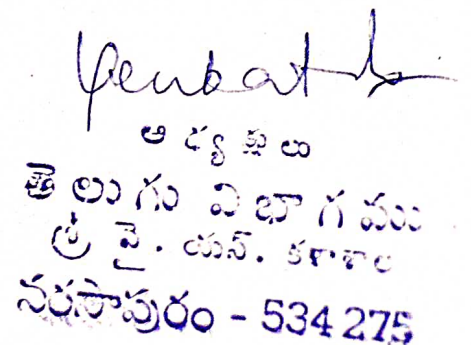 అధ్యక్షులు
తెలుగు విభాగము
శ్రీ వై. యన్. కళాశాల
నర్సాపురం - 534 275